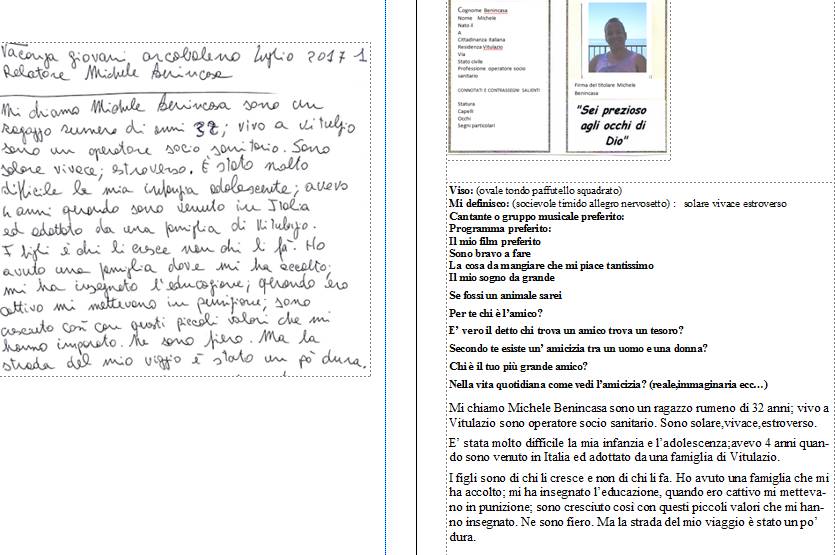 Vacanza giovani arcobaleno luglio 2017 1
Relatore Michele Benincasa
Mi chiamo Michele Benincasa sono un
ragazzo rumeno di anni 32; vivo a vitulazio
sono un operatore socio sanitario. Sono
solare vivace; estroverso. È stato molto
difficile la mia infanzia adolescente; avevo
4 anni quando sono venuto in Italia
ed adottato da una famiglia di Vitulazio.
I figli è chi li cresce non chi li fà. Ho
avuto una famiglia dove mi ha accolto;
mi ha insegnato l'educazione; quando ero
cattivo mi mettevano in punizione; sono
cresciuto così con questi piccoli valori che mi
hanno imparato. Ne sono fiero. Ma la
strada del mio viaggio è stato un pò dura.
Cognome Benincasa
Nome Michele
Nato il
A
Cittadinanza italiana
Residenza Vitulazio
Via
Stato civile
Professione operatore socio
sanitario
CONNOTATI E CONTRASSEGNI SALIENTI
Statura
Capelli
Occhi
Segni particolari
Firma del titolare Michele
Benincasa
"Sei prezioso
agli occhi di
Dio"
Viso: (ovale tondo paffutello squadrato)
Mi definisco: (socievole timido allegro nervosetto) : solare vivace estroverso
Cantante o gruppo musicale preferito:
Programma preferito:
Il mio film preferito
Sono bravo a fare
La cosa da mangiare che mi piace tantissimo
Il mio sogno da grande
Se fossi un animale sarei
Per te chi è l'amico?
E' vero il detto chi trova un amico trova un tesoro?
Secondo te esiste un' amicizia tra un uomo e una donna?
Chi è il tuo più grande amico?
Nella vita quotidiana come vedi l'amicizia? (reale,immaginaria ecc...)
Mi chiamo Michele Benincasa sono un ragazzo rumeno di 32 anni; vivo a
Vitulazio sono operatore socio sanitario. Sono solare,vivace,estroverso.
E' stata molto difficile la mia infanzia e l'adolescenza;avevo 4 anni quan-
do sono venuto in Italia ed adottato da una famiglia di Vitulazio.
I figli sono di chi li cresce e non di chi li fa. Ho avuto una famiglia che mi
ha accolto; mi ha insegnato l'educazione, quando ero cattivo mi metteva-
no in punizione; sono cresciuto così con questi piccoli valori che mi han-
no insegnato. Ne sono fiero. Ma la strada del mio viaggio è stato un po'
dura.